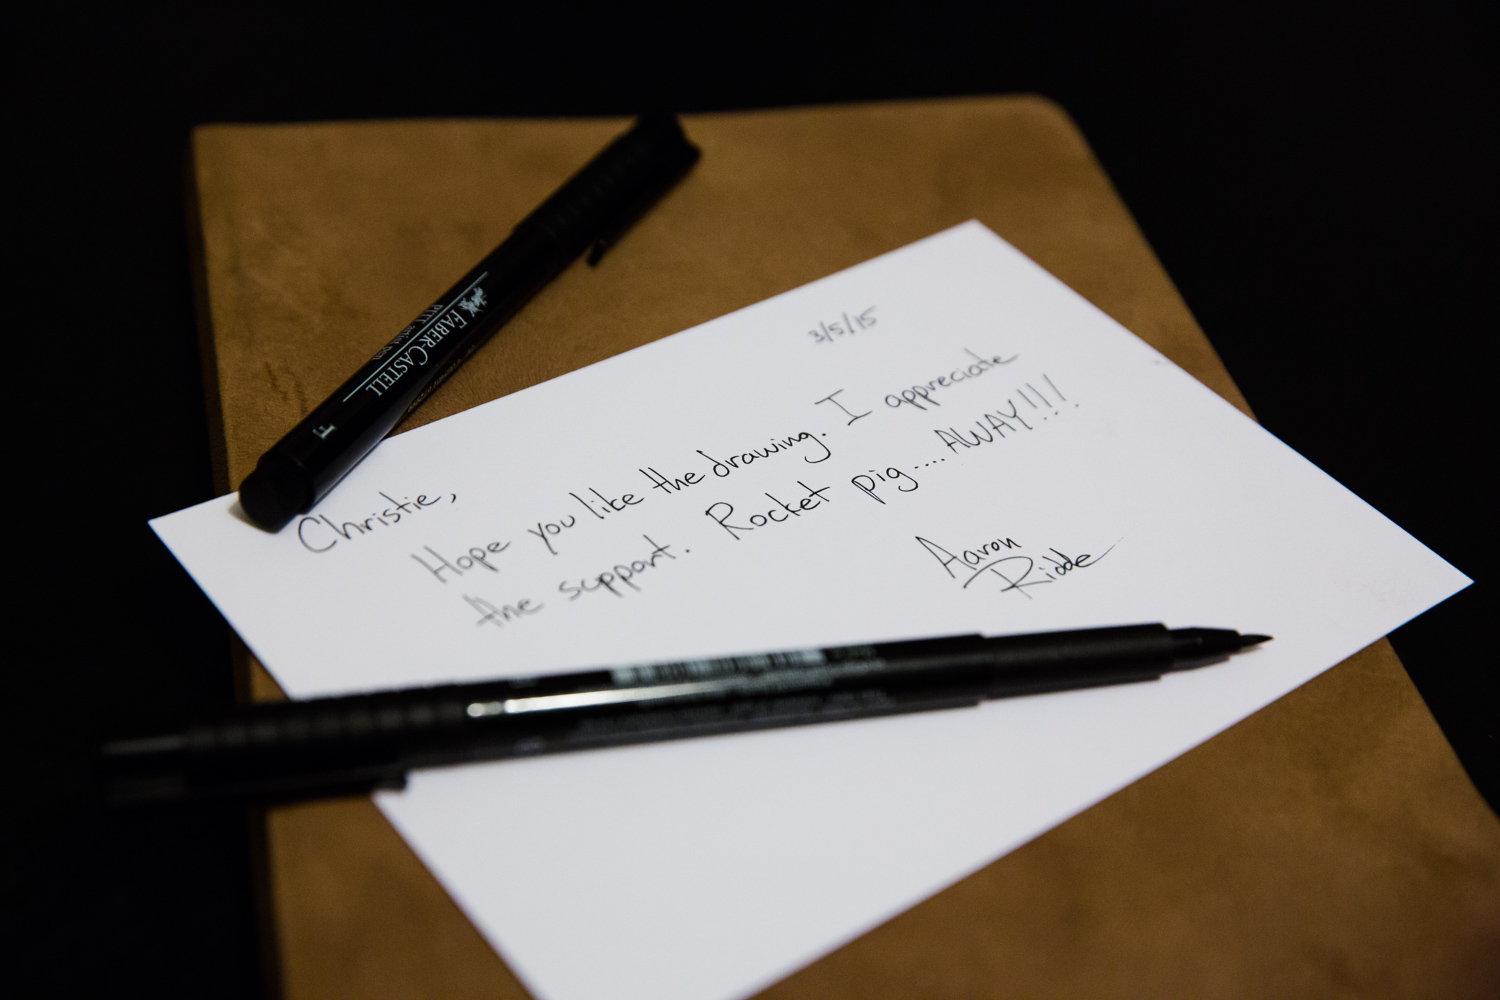 FABER-CASTELL
PITT artist pen
F
3/5/15
Christie,
Hope you like the drawing. I appreciate
the support. Rocket pig....AWAY!!!
Aaron
Ridde